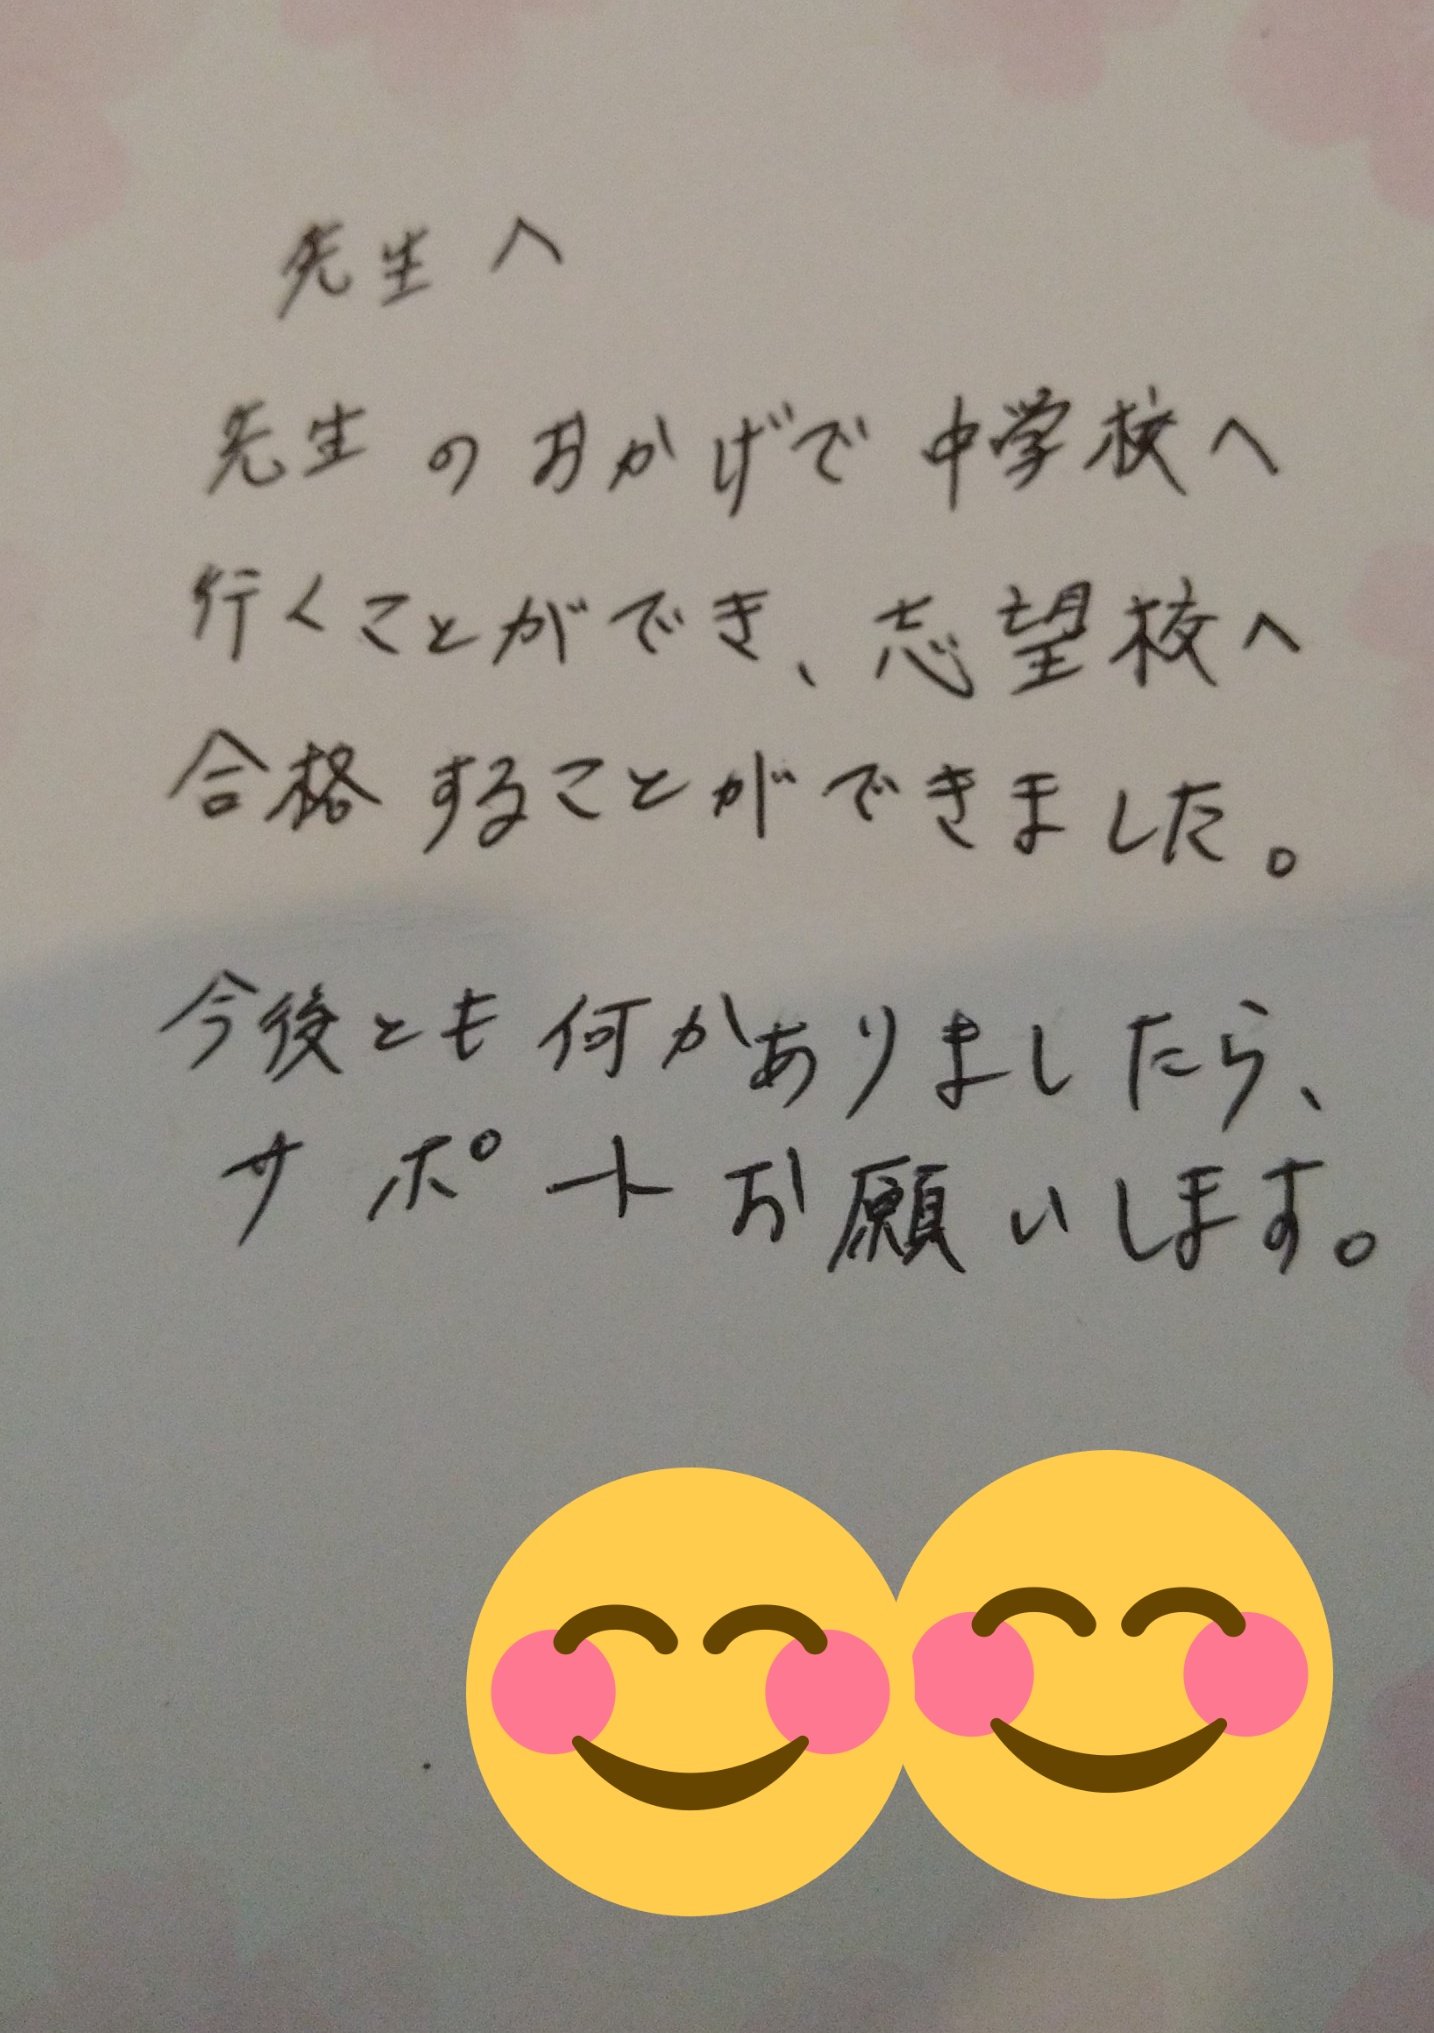 先生へ
先生のおかげで中学校へ
行くことができ、志望校へ
合格することができました。
今後とも何かありましたら、
サポートお願いします。